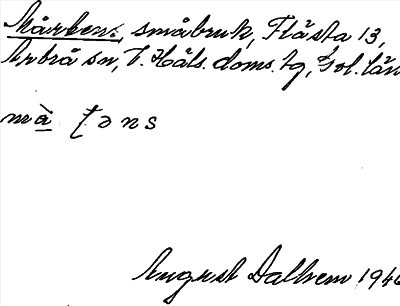 Mårtens, småbruk, Flästa 13,
Arbrå sn, V. Häls. doms. tg, Gvl. län
mà ʈəns
August Dalhem 1946